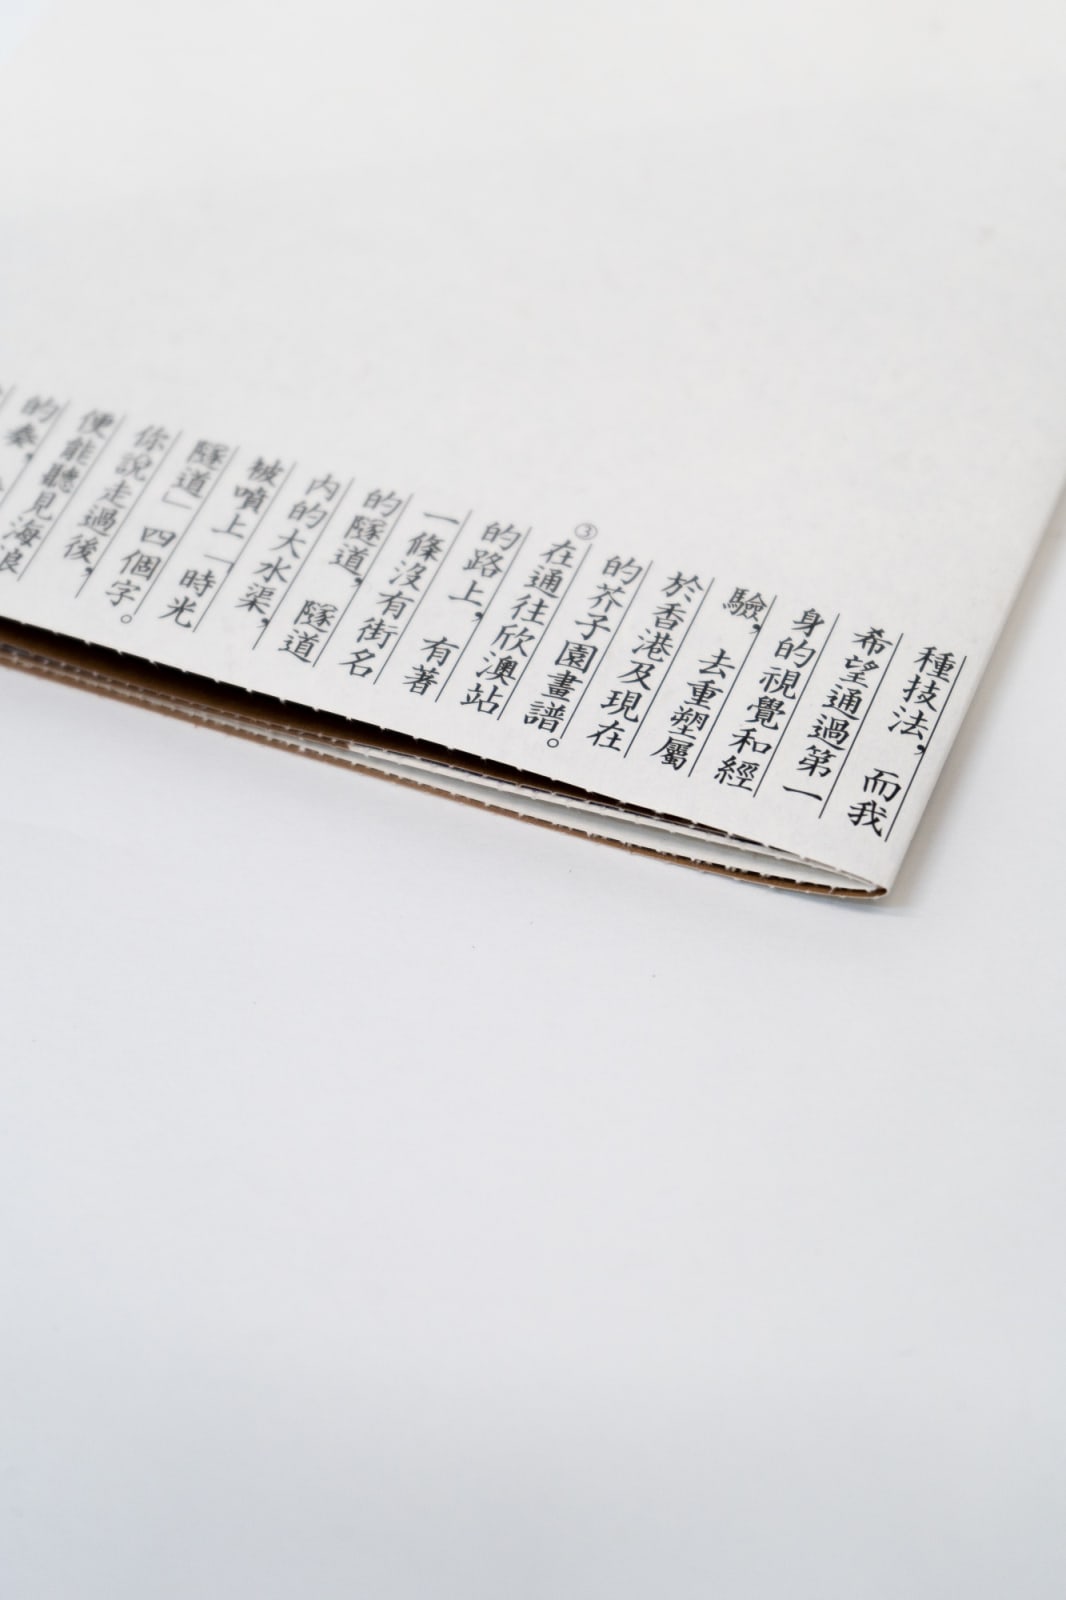 種技法，而我
希望通過第一
身的視覺和經
驗，去重塑屬
於香港及現在
的芥子園畫譜。
③在通往欣澳站
的路上，有著
一條沒有街名
的隧道，隧道
內的大水渠，
被噴上「時光
隧道」四個字。
你說走過後，
便能聽見海浪
的奏，